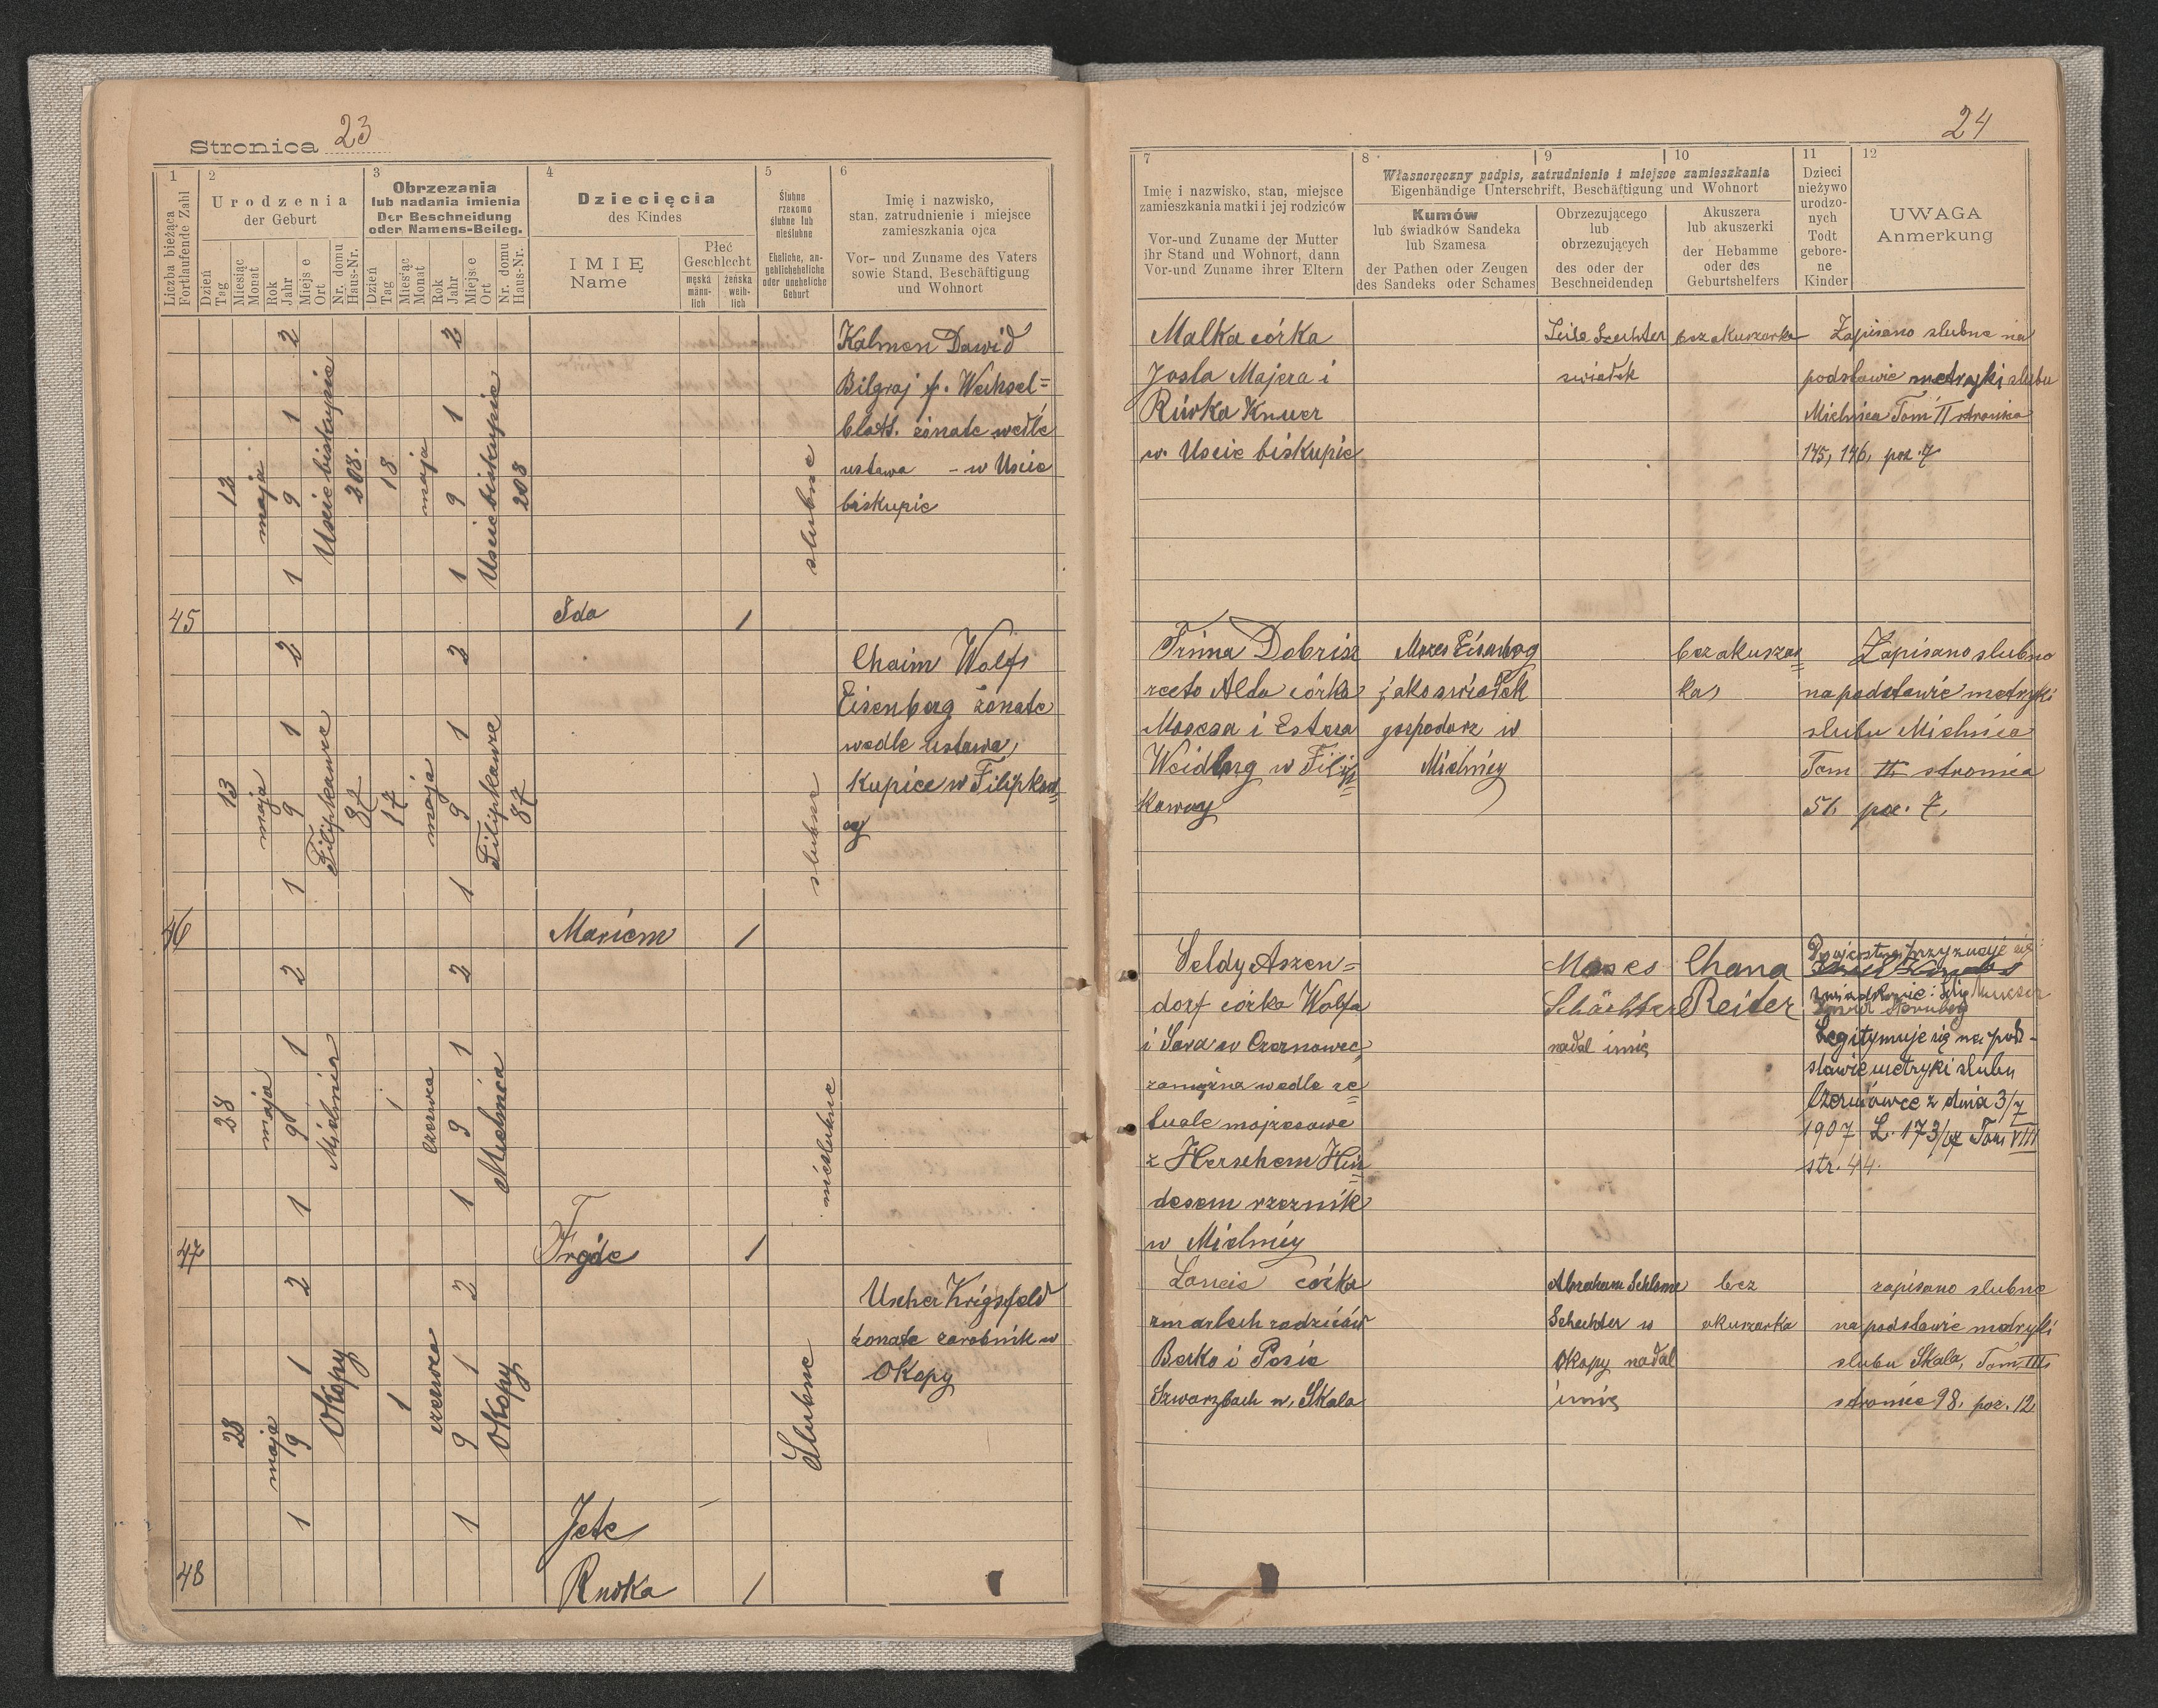 Stronica 23
1
2
3
4
5
6
Liczba bieżąca
Fortlaufende Zahl
Urodzenia
der Geburt
Dzień
Tag
Miesiąc
Monat
Rok
Jahr
Miejsce
Ort
Nr. domu
Haus-Nr.
Obrzezania
lub nadania imienia
Der Beschneidung
oder Namens-Beileg.
Dzień
Tag
Miesiąc
Monat
Rok
Jahr
Miejsce
Ort
Nr. domu
Haus-Nr.
Dziecięcia
des Kindes
IMIĘ
Name
Płeć
Geschlecht
męska
männ-
lich
żeńska
weib-
lich
Ślubne
rzekomo
ślubne lub
nieślubne
Eheliche, an-
geblicheheliche
oder uneheliche
Geburt
Imię i nazwisko,
stan, zatrudnienie i miejsce
zamieszkania ojca
Vor- und Zuname des Vaters
sowie Stand, Beschäftigung
und Wohnort
45
12
maja
1912
Uscie biskupie
208.
18
maja
1912
Uscie biskupie
208
Ida
1
slubne
Kalmen Dawid
Bilgraj f. Wechsel=
blatt. żonate wedle
ustawa – w Uscie
biskupie
46
13
maja
1912
Filipkowce
87
17
maja
1912
Filipkowce
87
Mariem
1
slubne
Chaim Wolf
Eisenberg żonate
wedle ustawa,
kupiec w Filipkow=
cy
47
28
maja
1912
Mielnica
1
czerwca
1912
Mielnica
Frojde
1
nieslubne
48
28
maja
1912
Okopy
1
czerwca
1912
Okopy
Jete
Rywka
1
Slubne
Uscher Krigsfeld
żonate zarobnik w
Okopy
24
7
8
9
10
11
12
Imię i nazwisko, stan, miejsce
zamieszkania matki i jej rodziców
Vor-und Zuname der Mutter
ihr Stand und Wohnort, dann
Vor-und Zuname ihrer Eltern
Własnoręczny podpis, zatrudnienie i miejsce zamieszkania
Eigenhändige Unterschrift, Beschäftigung und Wohnort
Kumów
lub świadków Sandeka
lub Szamesa
der Pathen oder Zeugen
des Sandeks oder Schames
Obrzezującego
lub
obrzezujących
des oder der
Beschneidenden
Akuszera
lub akuszerki
der Hebamme
oder des
Geburtshelfers
Dzieci
nieżywo
urodzo-
nych
Todt
gebore-
ne
Kinder
UWAGA
Anmerkung
Malka córka
Josla Majera i
Riwka Knuer
w. Uscie biskupie
Leib Szechter
swiadek
bez akuszerka
Zapisano slubne na
podstawie metryki slubu
Mielnica Tom II stronica
145, 146, poz. 7
Frima Dobrisz
recto Alda córka
Mosesa i Estera
Weidberg w Filip=
kowcy
Moses Eisenberg
jako swiadek
gospodarz w
Mielnicy
bez akuszer=
ka,
Zapisano slubne
na podstawie metryki
slubu Mielnica
Tom III stronica
51. poz. 7.
Seldy Aszen=
dorf córka Wolfa
i Sara w Czernowec
zamężna wedle re=
tuale mojżesowe
z Herschem Hin=
desem rzeznik
w Mielnicy
Moses
Schächter
nadal imię
Chana
Reiter
przyznaje się
swiadkowie:
Legitymuje się na pod-
stawie metryki slubu
Czerniowce z dnia 3/7
1907 L. 173/07 Tom VIII
str. 44.
Lancie córka
zmarlech rodziców
Berko i Pesie
Szwarzbach w. Skala
Abraham Schlome
Schechter w
Okopy nadal
imię
bez
akuszerka
zapisano slubne
na podstawie metryki
slubu Skala, Tom. III.
stronice 98. poz. 12.